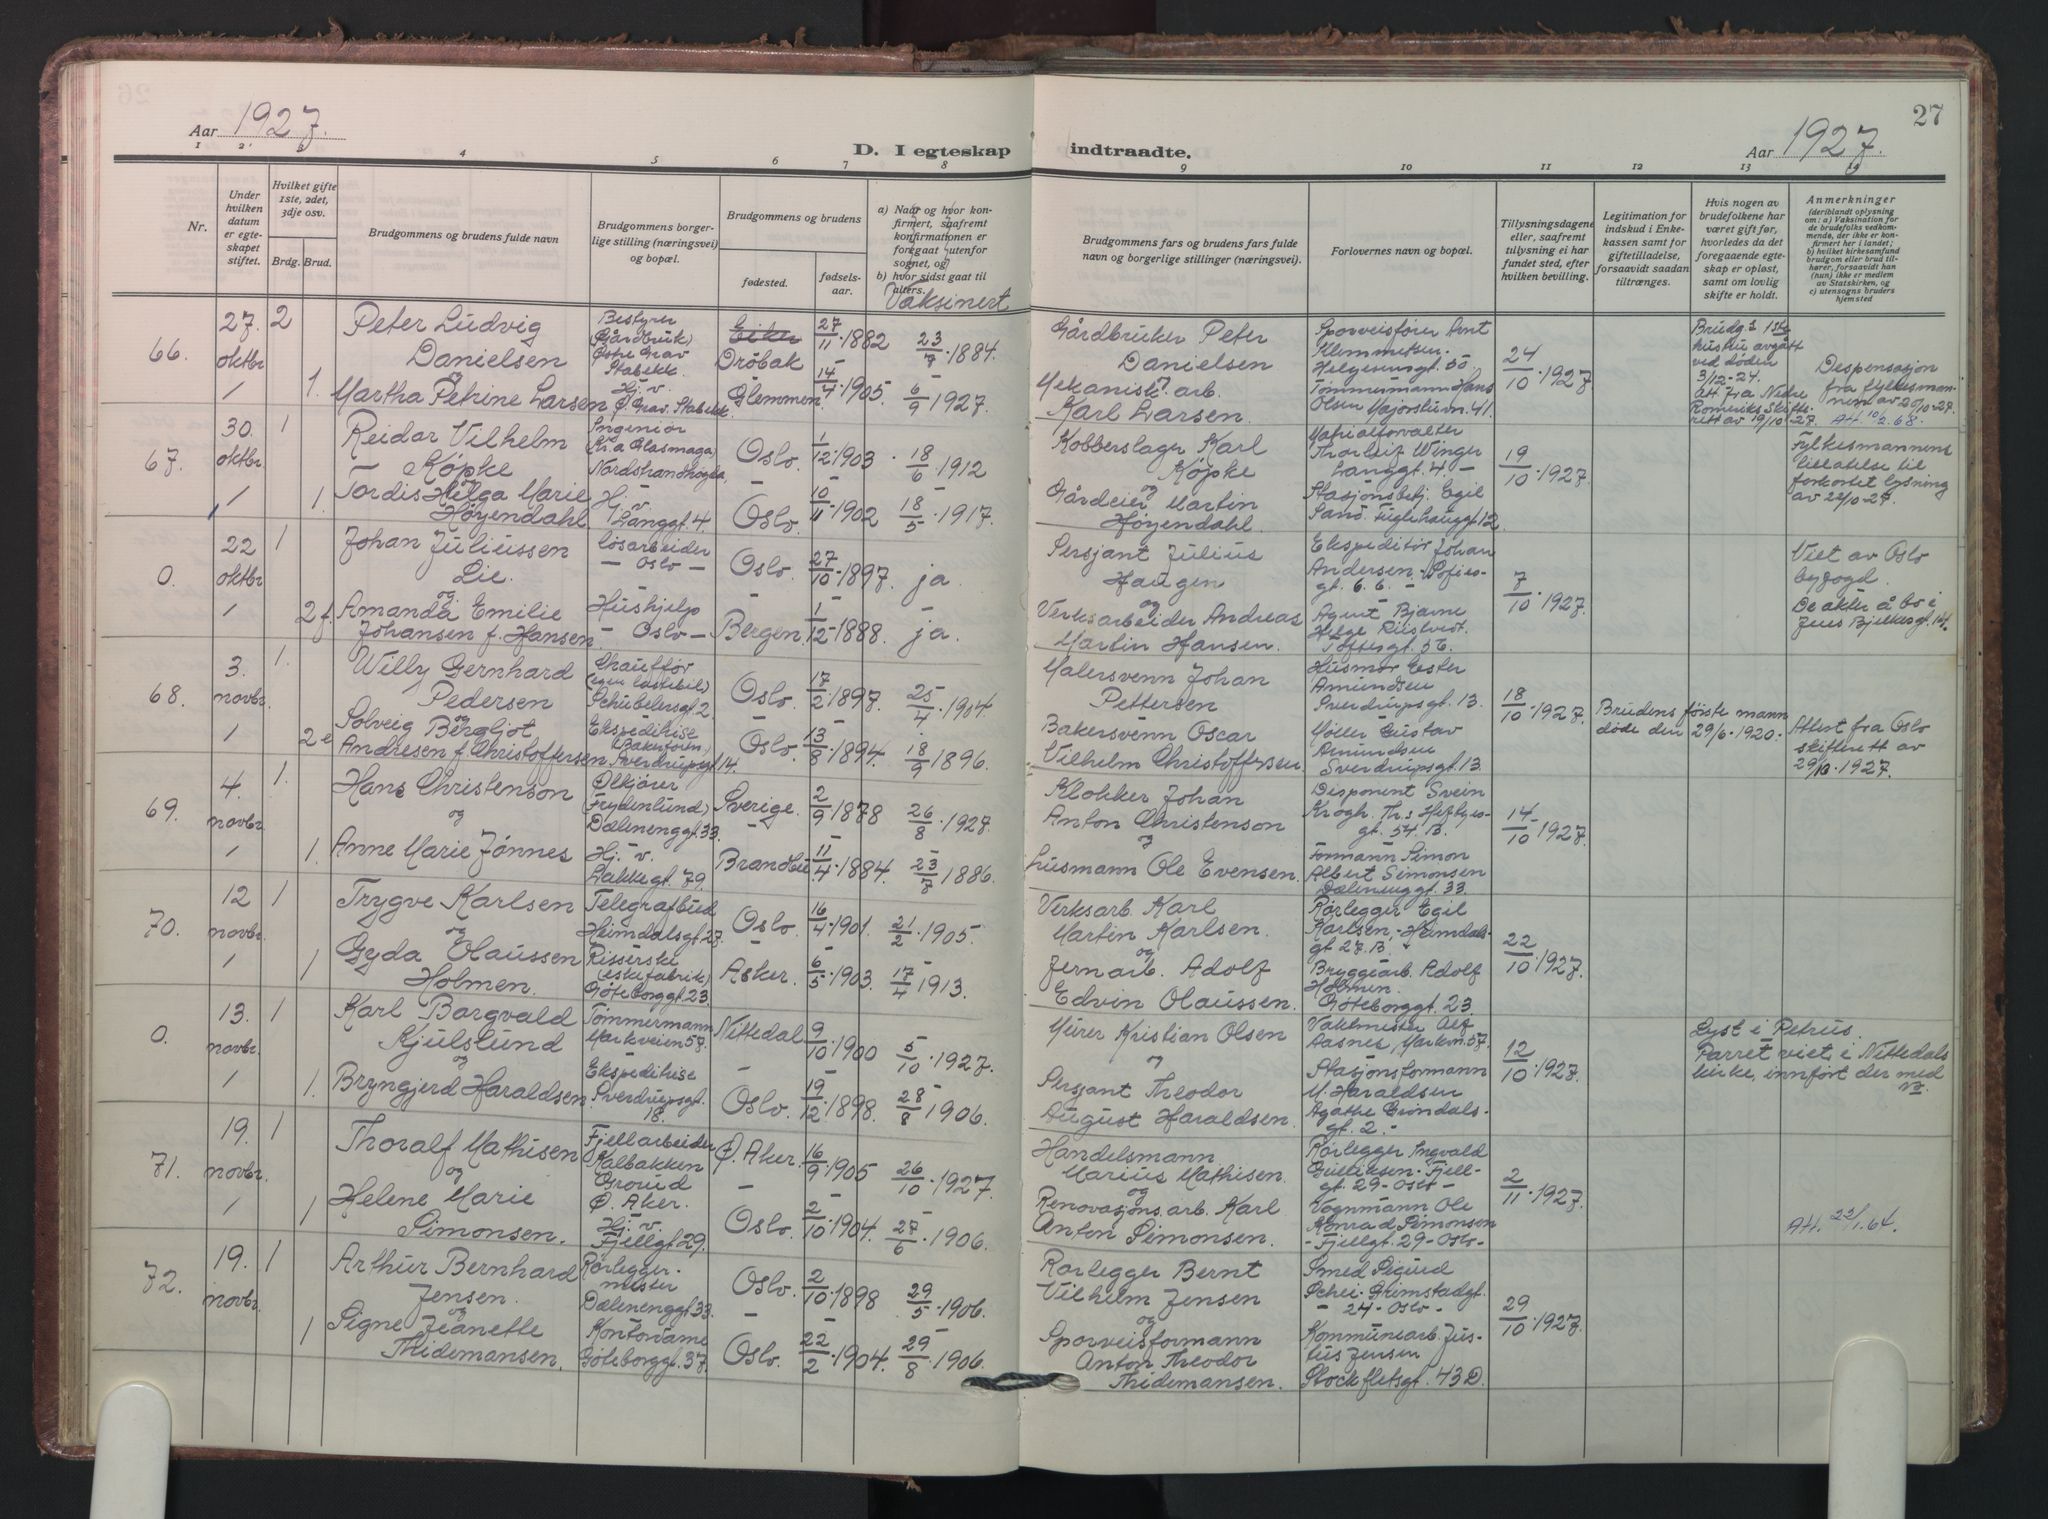 27
Aar 1927.
D. I egteskap indtraadte.
Aar 1927.
1 2 3 4 5 6 7 8 9 10 11 12 13 14
Nr.
Under hvilken datum er egteskapet stiftet.
Hvilket gifte 1ste, 2det, 3dje osv.
Brdg. Brud.
Brudgommens og brudens fulde navn
Brudgommens borgerlige stilling (næringsvei) og bopæl.
Brudgommens og brudens
fødested. fødselsaar.
a) Naar og hvor konfirmert, saafremt konfirmationen er foregaat utenfor sognet, og
b) hvor sidst gaat til alters.
Vaksinert
Brudgommens fars og brudens fars fulde navn og borgerlige stillinger (næringsvei).
Forlovernes navn og bopæl.
Tillysningsdagene eller, saafremt tillysning ei har fundet sted, efter hvilken bevilling.
Legitimation for indskud i Enkekassen samt for giftetilladelse, forsaavidt saadan tiltrænges.
Hvis nogen av brudefolkene har været gift før, hvorledes da det foregaaende egteskap er opløst, samt om lovlig skifte er holdt.
Anmerkninger
(deriblandt oplysning om: a) Vaksination for de brudefolks vedkommende, der ikke er konfirmert her i landet; b) hvilket kirkesamfund brudgom eller brud tilhører, forsaavidt han (hun) ikke er medlem av Statskirken, og c) utensogns bruders hjemsted
66. 27. oktbr 2
Peter Ludvig Danielsen
Bestyrer (Gårdbruk) Østre Grav Stabekk.
Eiker Drøbak
27/11 1882
23/7 1884.
Gårdbruker Peter Danielsen
Sporveisfører Arnt Klemmetsen. Helgesensgt. 50
24/10 1927
Brudg.s 1ste hustru avgått ved døden 3/12-24. Att. fra Nedre Romeriks Skifterett av 19/10-27.
Dispensasjon fra fylkesmannen av 20/10-27.
Att. 10/2.68.
og
1. Martha Petrine Larsen
Hj. v. Ø. Grav. Stabekk.
Glemmen
14/4 1905.
6/9 1927
Mekanisk arb. Karl Larsen.
Tømmermann Hans Olsen Majorstuvn. 41.
67. 30. oktbr. 1
Reidar Vilhelm Köpke
Ingeniør (Kr.a Glasmaga) Nordstrandhøgda
Oslo.
1/12 1903
18/6 1912
Kobberslager Karl Köpke
Matrialforvalter Thorleif Winger Langgt. 4 -
19/10 1927.
Fylkesmannens tillatelse til forkortet lysning av 22/10-27.
og
1. Tordis Helga Marie Høyendahl
Hj. v. Langgt. 4.
Oslo.
10/11 1902
18/5 1917.
og
Gårdeier Martin Høyendahl.
Stasjonsbetj. Egil Sand. Fuglehauggt 12
0. 22 oktbr 1
Johan Juliussen Lie.
løsarbeider - Oslo -
Oslo.
27/10 1897.
ja.
Sersjant Julius Haugen
Ekspeditør Johan Andersen - Sofiesgt. 6. 6. -
7/10 1927.
Viet av Oslo byfogd.
De akter å bo i Jens Bjelkesgt. 14.
og
2f. Amanda Emilie Johansen f. Hansen
Hushjelp - Oslo -
Bergen
1/12 1888.
ja.
og
Verksarbeider Andreas Martin Hansen.
Agent Bjarne Helge Rustvedt. Toftesgt. 56.
68. 3. novbr. 1.
Willy Gernhard Pedersen
Chauffør (egen lastebil) Schübelersgt. 2
Oslo.
17/2 1897
25/4 1904.
Malersvenn Johan Pettersen
Husmor Ester Amundsen Sverdrupsgt. 13.
18/10 1927.
Brudens første mann døde den 29/6-1920.
Attest fra Oslo skifterett av 29/10.1927.
og
2e Solveig Bergljot Andresen f. Christoffersen
Ekspeditrise (Bakerforr.) Sverdrupsgt. 14.
Oslo.
13/8 1894.
18/9 1896.
Bakersvenn Oscar Vilhelm Christoffersen
Møller Gustav Amundsen Sverdrupsgt. 13.
69. 4. novbr. 1.
Hans Christenson
Ølkjører (Frydenlund) Dælenenggt. 33.
Sverige
2/9 1878
26/8 1927.
Klokker Johan Anton Christenson
Disponent Svein Krogh Th.s Heftyesgt. 54. B.
14/10 1927
og
1. Anne Marie Jønnes
Hj. v. Lakkegt. 79.
Brandbu
11/4 1884.
23/7 1886.
og
husmann Ole Evensen.
Formann Simon Albert Simonsen Dælenenggt. 33.
70. 12 novbr. 1
Trygve Karlsen
Telegrafbud Heimdalsgt. 27.
Oslo.
16/4 1901.
21/2 1905.
Verksarb. Karl Martin Karlsen.
Rørlegger Egil Karlsen,- Heimdalsgt. 27. B.
22/10 1927.
og
1 Gyda Olaussen Holmen.
Risserske (eskefabrik) Göteborggt. 23.
Asker.
6/5 1903.
17/4 1913.
og
Jernarb. Adolf Edvin Olaussen.
Bryggearb. Adolf Holmen. Göteborggt. 23.
0. 13. novbr. 1
Karl Borgvald Kjulslund
Tømmermann Markveien 57.
Nittedal
9/10 1900
5/10 1927.
Murer Kristian Olsen
Vaktmester Alf Aasnes, Markvn. 57.
12/10 1927.
Lyst i Petrus.
Parret viet i Nittedals kirke, innført der med nr.
og
1. Bryngjerd Haraldsen
Ekspeditrise Sverdrupsgt. 18.
Oslo.
19/12 1898.
28/8 1906.
og
Sersjant Theodor August Haraldsen.
Stasjonsformann M. Haraldsen Agathe Grøndalsgt. 2. -
71. 19. novbr. 1
Thoralf Mathisen
Fjellarbeider Kalbakken Grorud Ø. Aker.
Ø. Aker.
16/9 1905
26/10 1927.
Handelsmann Marius Mathisen.
Rørlegger Ingvald Gulliksen - Fjellgt. 29 - Oslo -
2/11 1927.
Att. 22/1.64.
og
1 Helene Marie Simonsen.
Hj. v. Fjellgt. 29.
Oslo.
2/10 1904.
27/6 1906.
og
Renovasjons.arb. Karl Anton Simonsen.
Vognmann Ole Konrad Simonsen - Fjellgt. 29 - Oslo -
72. 19. novbr. 1
Arthur Bernhard Jensen.
Rørleggermester Dælenenggt. 33.
Oslo.
2/10 1898
29/5 1906.
Rørlegger Bernt Vilhelm Jensen
Smed Sigurd Schei - Grimstadgt. - 24 - Oslo -
29/10 1927.
og
1 Signe Jeanette Thidemansen.
Kontordame Göteborggt. 37.
Oslo.
22/2 1904.
29/8 1906.
og
Sporveisformann Anton Theodor Thidemansen.
Kommunearb. Justus Jensen Stockfletsgt. 43 D.